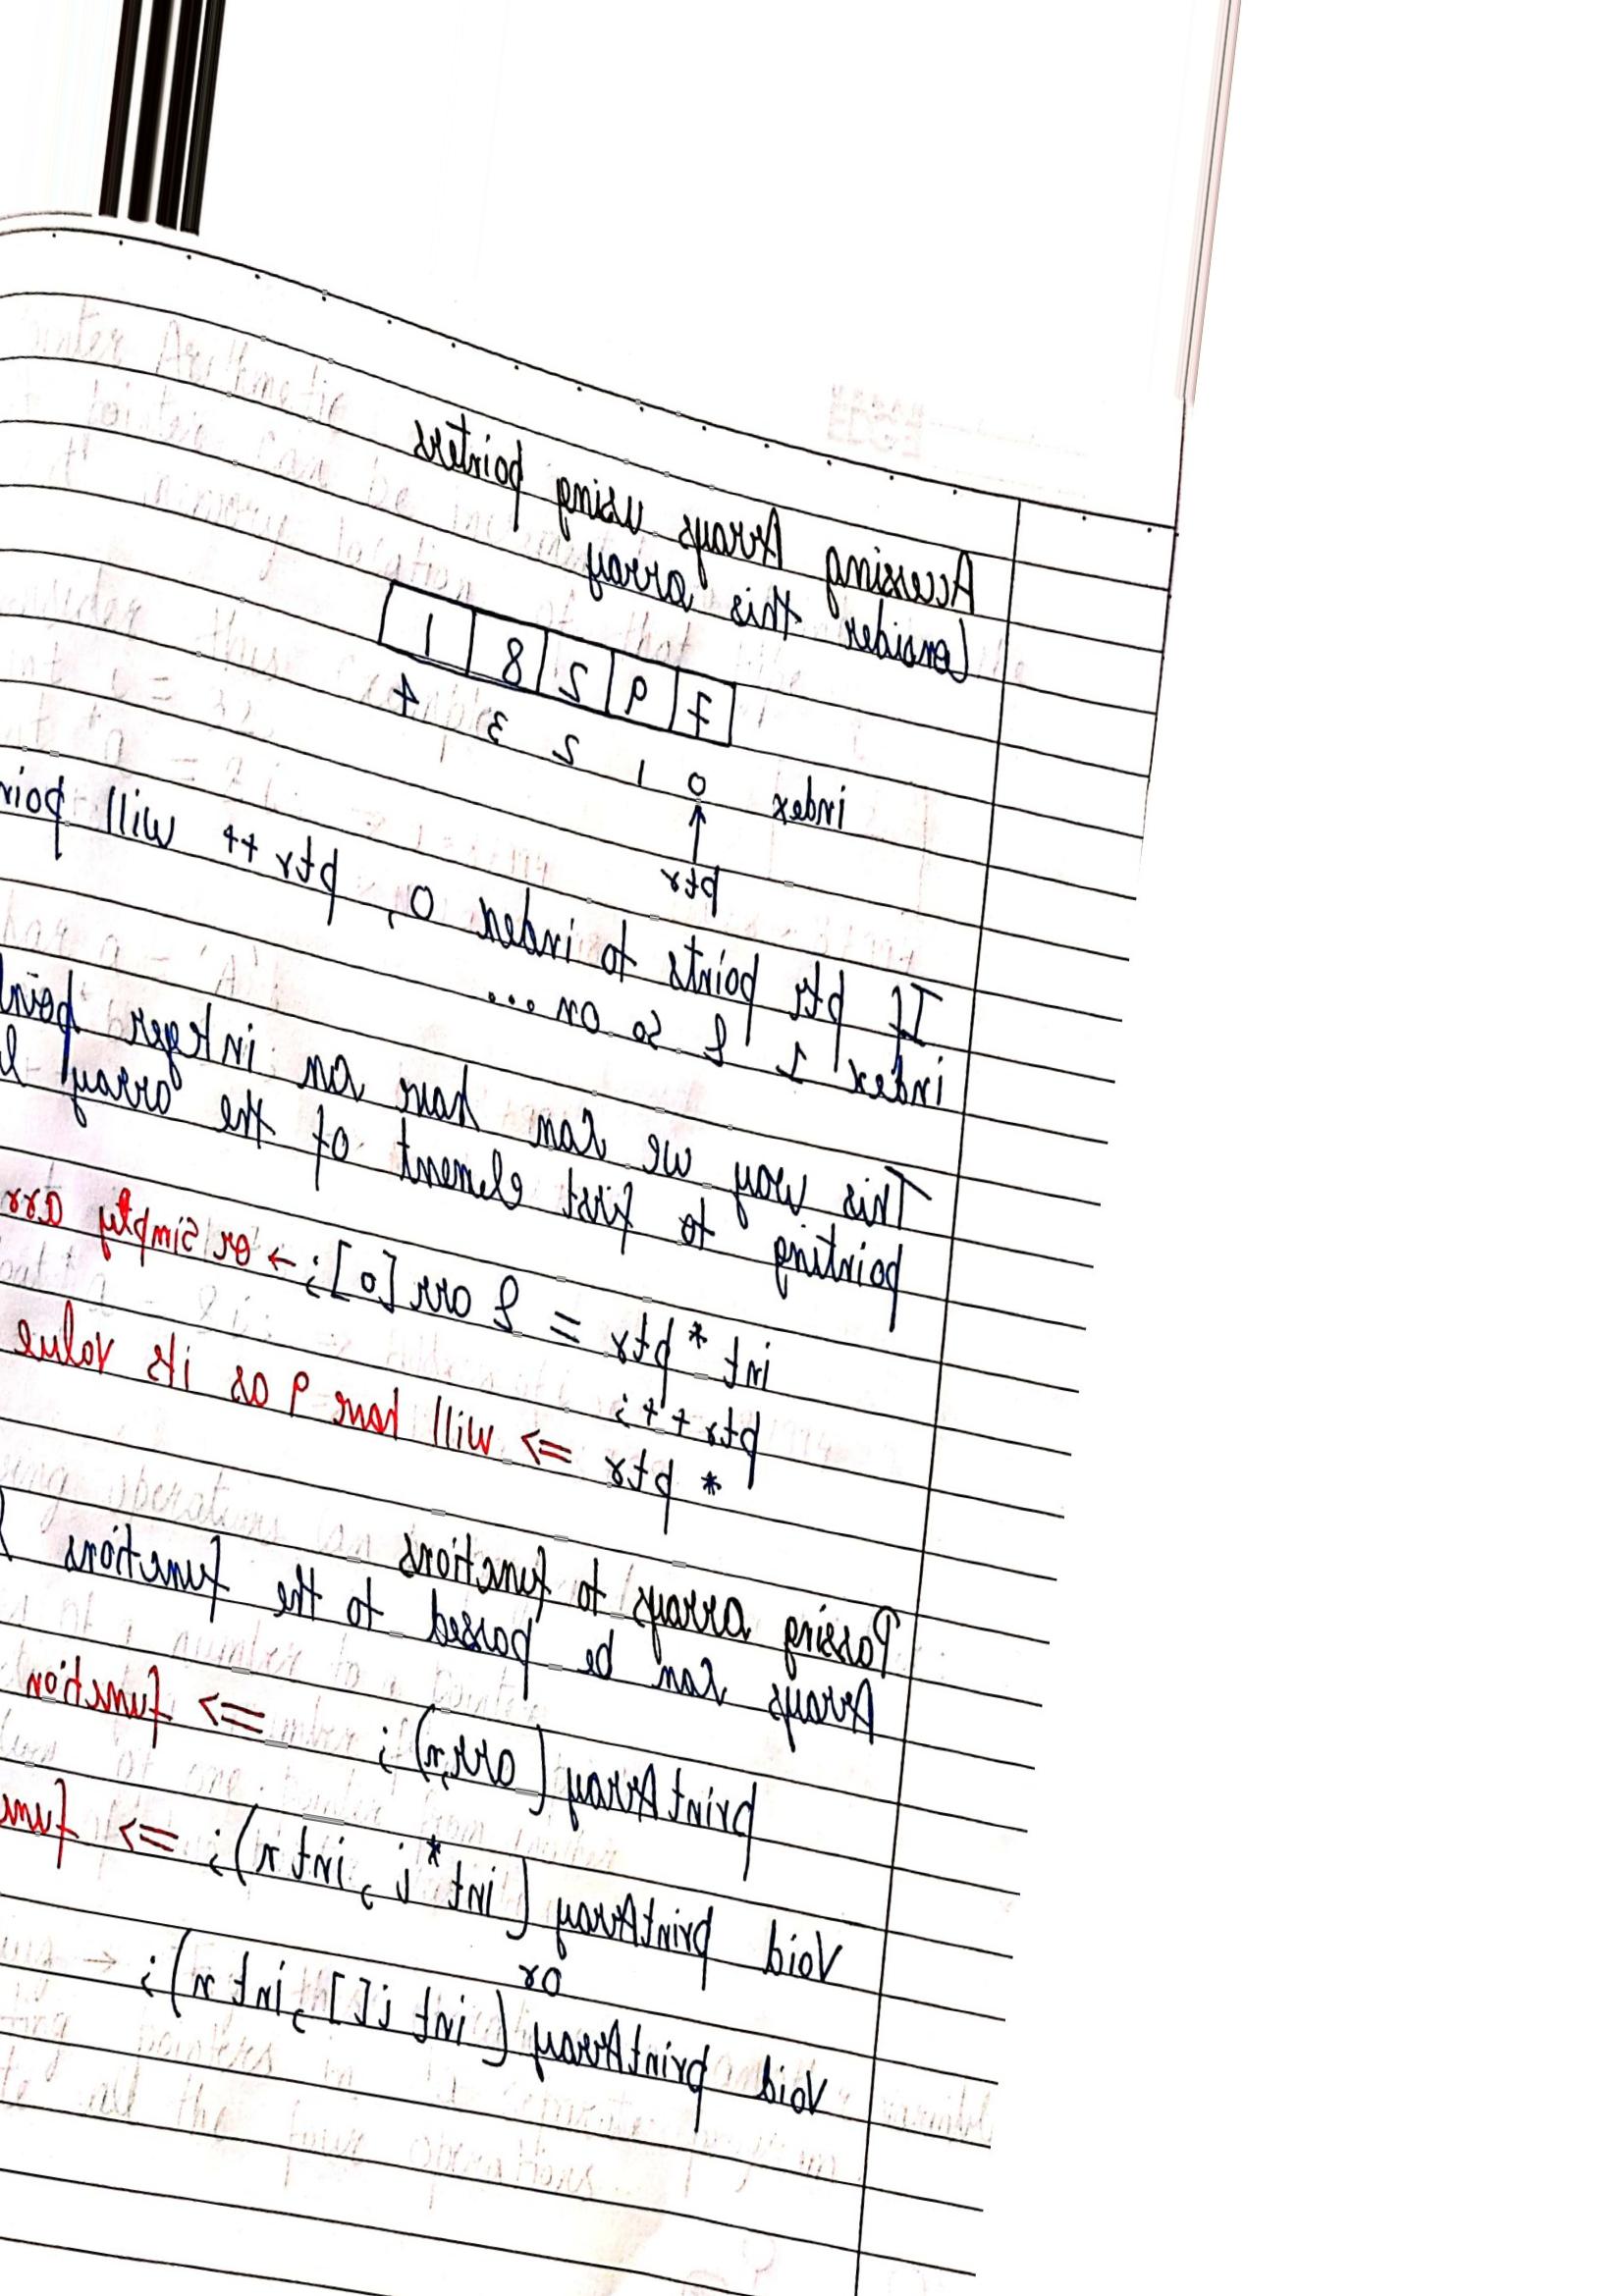 Accessing Arrays using pointers
Consider this array
7 9 2 8 1
index 0 1 2 3 4
ptr
If ptr points to index 0, ptr ++ will
index 1 & so on ...
This way we can have an integer
pointing to first element of the array &
int * ptr = & arr [0]; → or simply arr
ptr ++;
* ptr => will have 9 as its value
Passing arrays to functions
Arrays can be passed to the functions
printArray (arr, n); => function
Void printArray (int * i, int n); =>
or
Void printArray (int i[], int n); ←